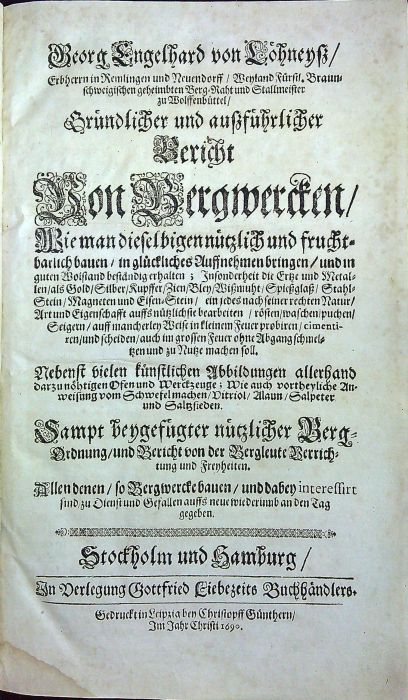 Georg Engelhard von Löhneyß/
Erbherrn in Remlingen und Neuendorff/ Weyland Fürstl. Braun-
schweigischen geheimbten Berg-Raht und Stallmeister
zu Wolffenbüttel/
Gründlicher und außführlicher
Bericht
Von Bergwercken/
Wie man dieselbigen nützlich und frucht-
barlich bauen/ in glückliches Auffnehmen bringen/ und in
guten Wolstand beständig erhalten; Insonderheit die Ertze und Metal-
len/ als Gold/ Silber/ Kupffer/ Zien/ Bley/ Wißmuht/ Spießglaß/ Stahl-
Stein/ Magneten und Eisen-Stein/ ein jedes nach seiner rechten Natur/
Art und Eigenschafft auffs nützlichste bearbeiten/ rösten/ waschen/ puchen/
Seigern/ auff mancherley Weise in kleinem Feuer probiren/ cimenti-
ren/ und scheiden/ auch im grossen Feuer ohne Abgang schmel-
tzen und zu Nutze machen soll.
Nebenst vielen künstlichen Abbildungen allerhand
darzu nöhtigen Ofen und Werckzeuge; Wie auch vortheyliche An-
weisung vom Schwefel machen/ Vitriol/ Alaun/ Salpeter
und Saltzsieden.
Sampt beygefügter nützlicher Berg-
Ordnung/ und Bericht von der Bergleute Verrich-
tung und Freyheiten.
Allen denen/ so Bergwercke bauen/ und dabey interessirt
sind/ zu Dienst und Gefallen auffs neue wiederumb an den Tag
gegeben.
Stockholm und Hamburg/
In Verlegung Gottfried Liebezeits Buchhändlers.
Gedruckt in Leipzig bey Christopff Günthern/
Im Jahr Christi 1690.